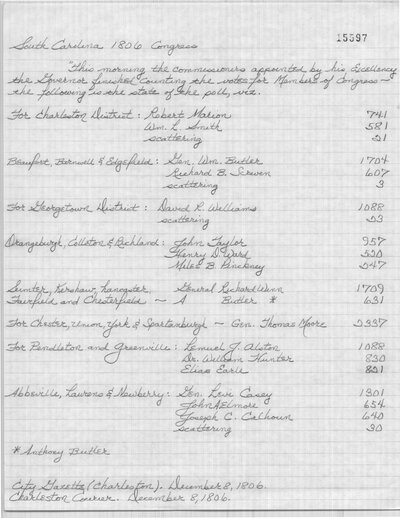 15597
South Carolina 1806 Congress
"This morning the commissioners appointed by his Excellency
the Governor finished counting the votes for Members of Congress –
the following is the state of the poll, viz.
For Charleston District: Robert Marion 741
Wm. L. Smith 581
scattering 21
Beaufort, Barnwell & Edgefield: Gen. Wm. Butler 1704
Richard B. Screven 607
scattering 3
For Georgetown District: David R. Williams 1088
scattering 23
Orangeburgh, Colleton & Richland: John Taylor 957
Henry D. Ward 520
Miles B. Pinckney 247
Sumter, Kershaw, Lancaster, General Richard Winn 1709
Fairfield and Chesterfield – A Butler * 631
For Chester, Union, York & Spartanburgh – Gen. Thomas Moore 2337
For Pendleton and Greenville: Lemuel J. Alston 1088
Dr. William Hunter 830
Elias Earle 821
Abbeville, Laurens & Newberry: Gen. Levi Casey 1301
John A Elmore 654
Joseph C. Calhoun 640
scattering 30
* Anthony Butler
City Gazette (Charleston). December 8, 1806.
Charleston Courier. December 8, 1806.